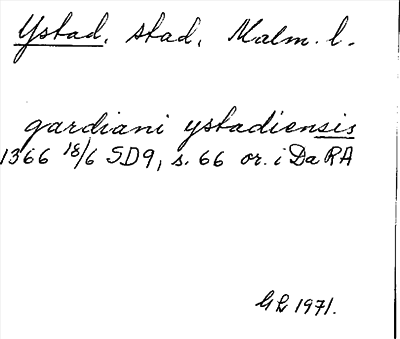 Ystad, stad, Malm. l.
gardiani ystadiensis
1366 18/6 SD9, s. 66 or. i DaRA
GL 1971.